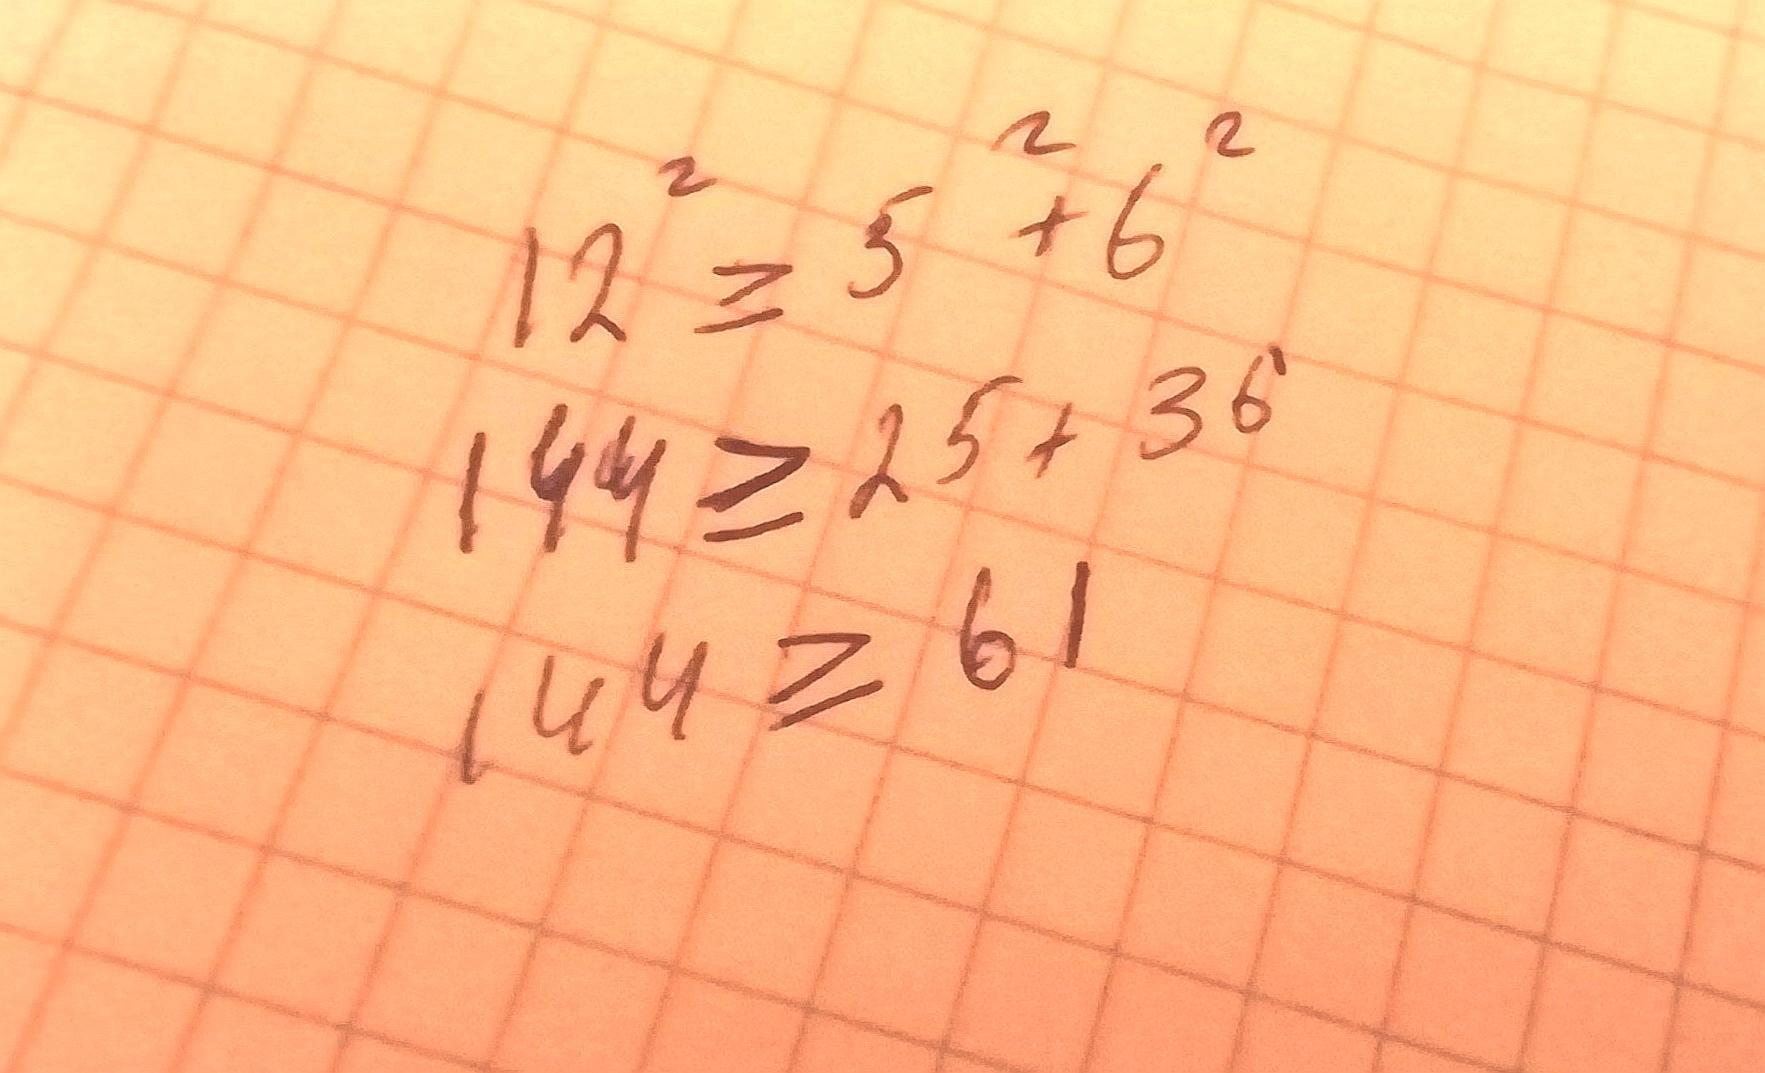 12² ≥ 5² + 6²
144 ≥ 25 + 36
144 ≥ 61